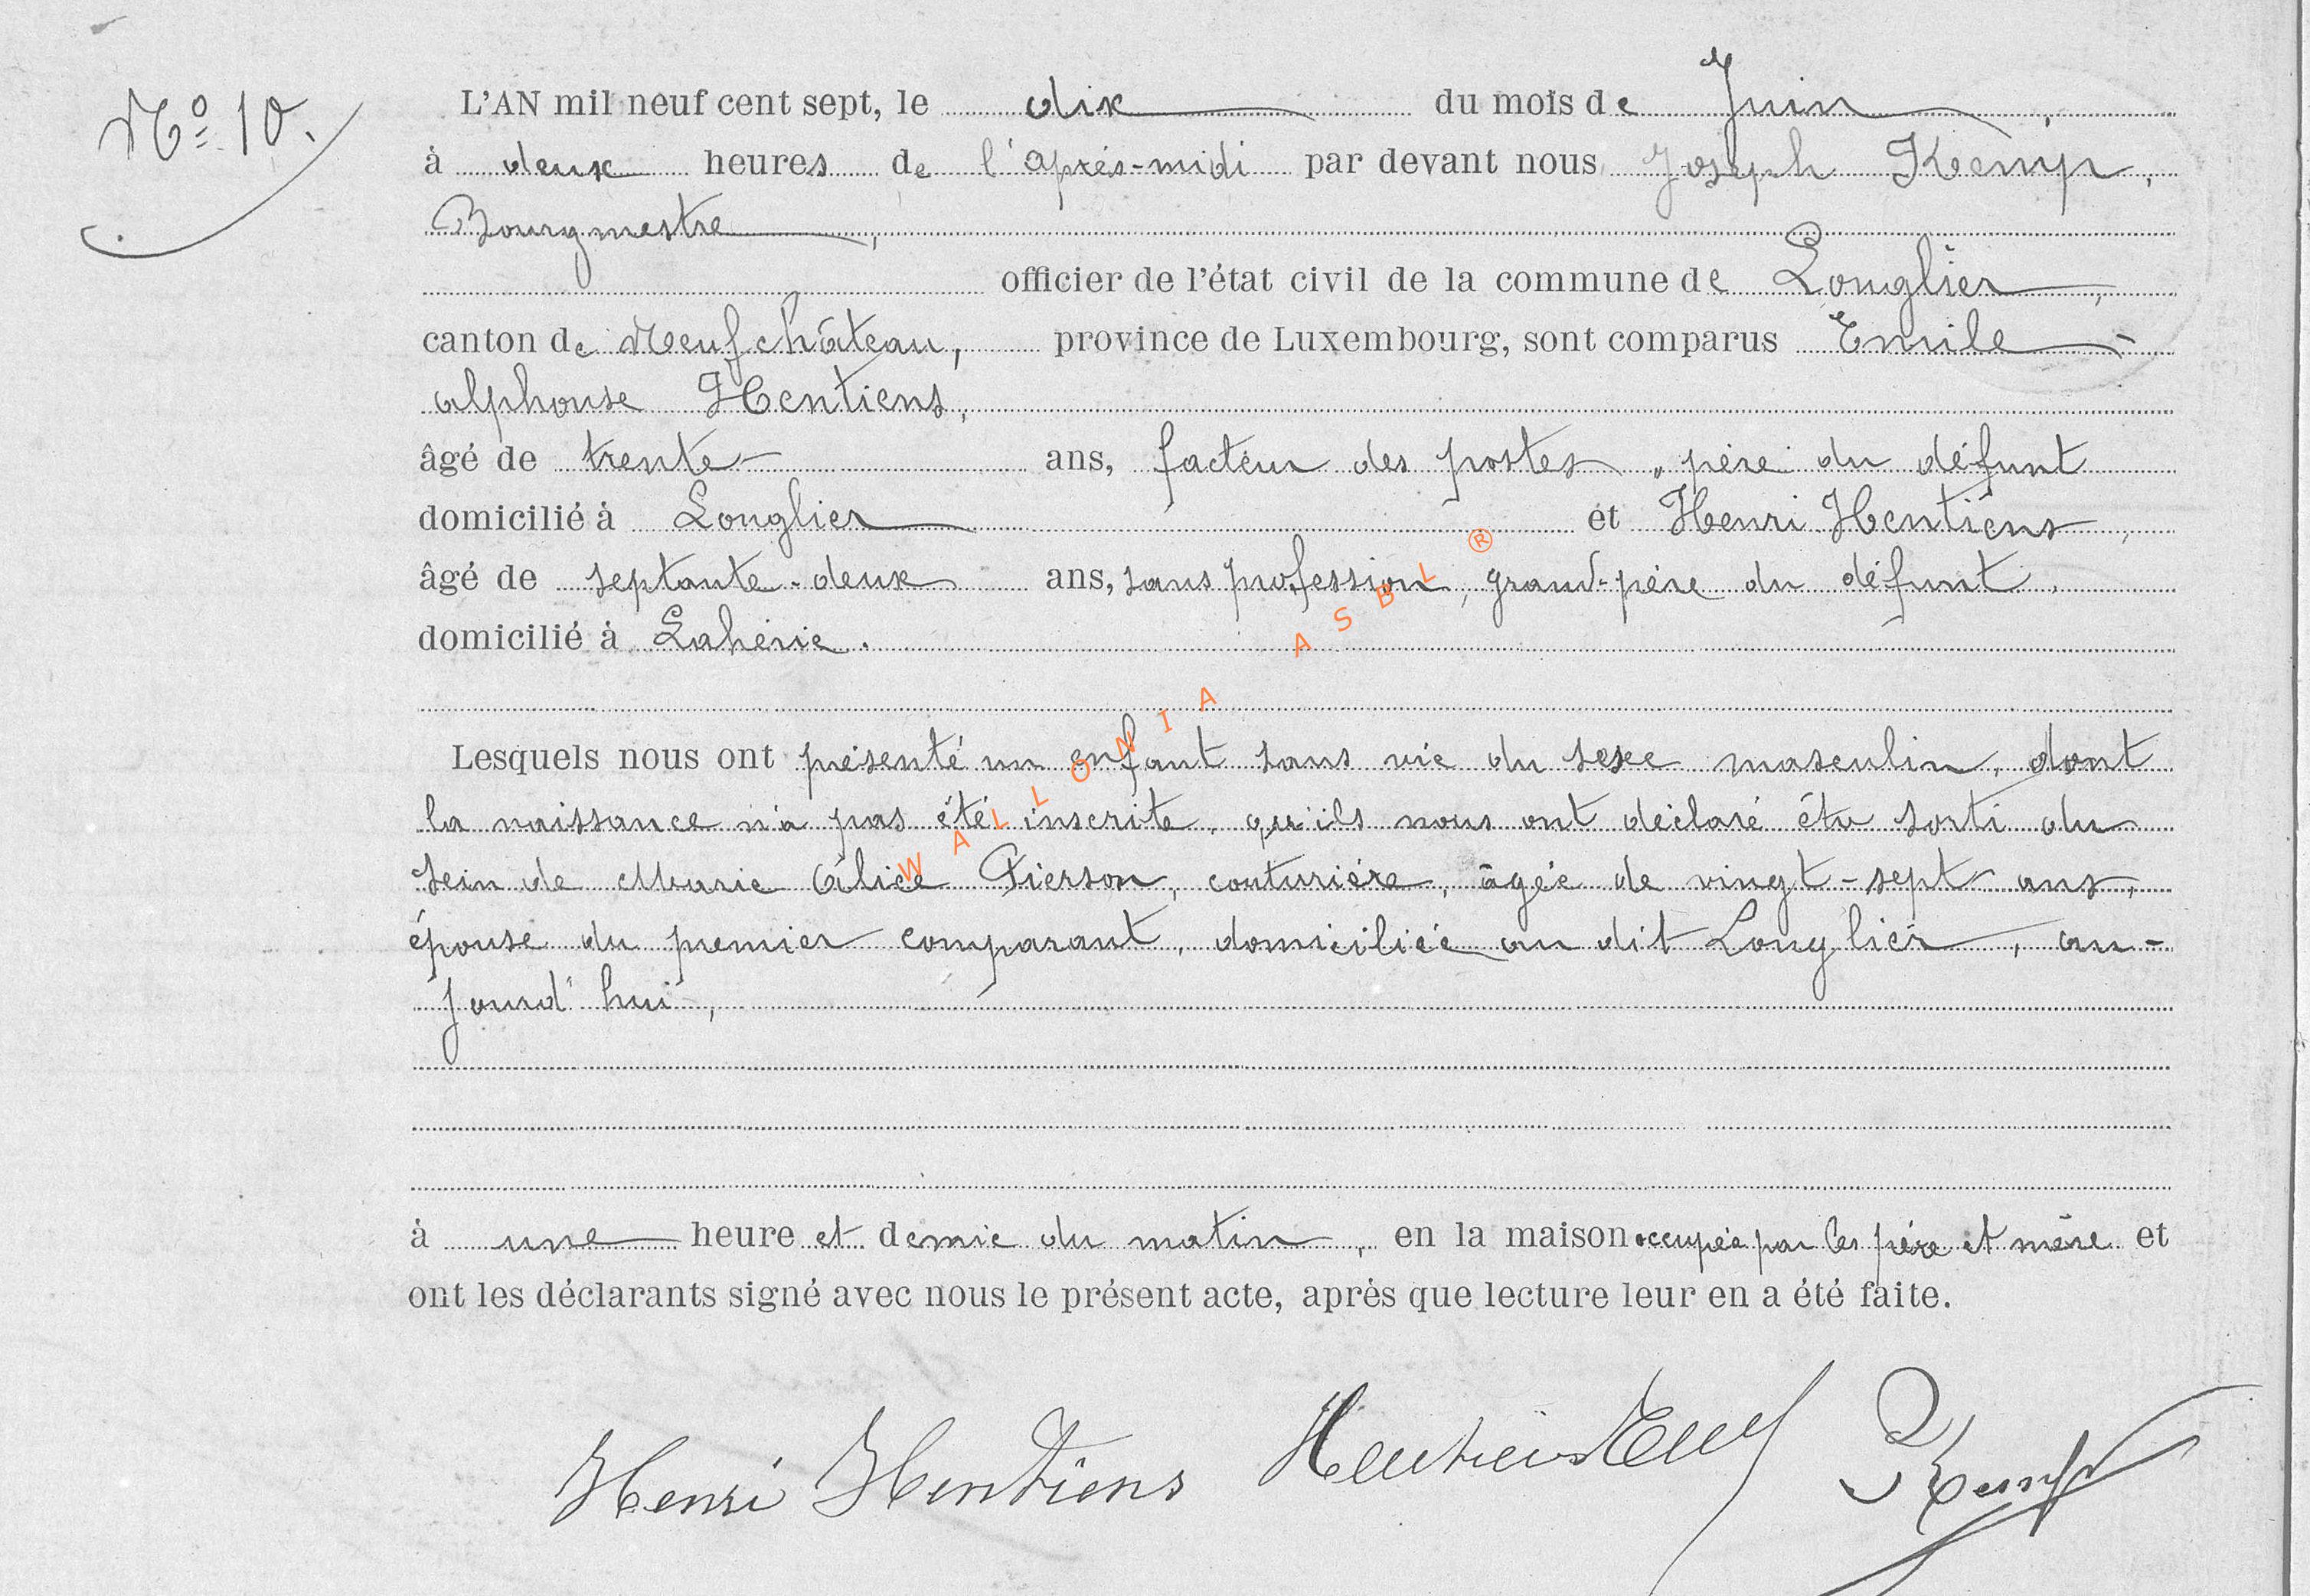 Nº 10.
L'AN mil neuf cent sept, le dix du mois de Juin,
à deux heures de l'après-midi par devant nous Joseph Kemp,
Bourgmestre,
officier de l'état civil de la commune de Longlier,
canton de Neufchâteau, province de Luxembourg, sont comparus Emile
alphonse Hentiens,
âgé de trente ans, facteur des postes, père du défunt
domicilié à Longlier et Henri Hentiens,
âgé de septante-deux ans, sans profession, grand-père du défunt.
domicilié à Lahérie.
Lesquels nous ont présenté un enfant sans vie du sexe masculin, dont
la naissance n'a pas été inscrite, qu'ils nous ont déclaré être sorti du
sein de Marie Alice Pierson, couturière, âgée de vingt-sept ans,
épouse du premier comparant, domiciliée au dit Longlier, au-
jourd'hui,
à une heure et demie du matin, en la maison occupée par les père et mère et
ont les déclarants signé avec nous le présent acte, après que lecture leur en a été faite.
Henri Hentiens Hentiens Em J Kemp
WALLONIA ASBL ®